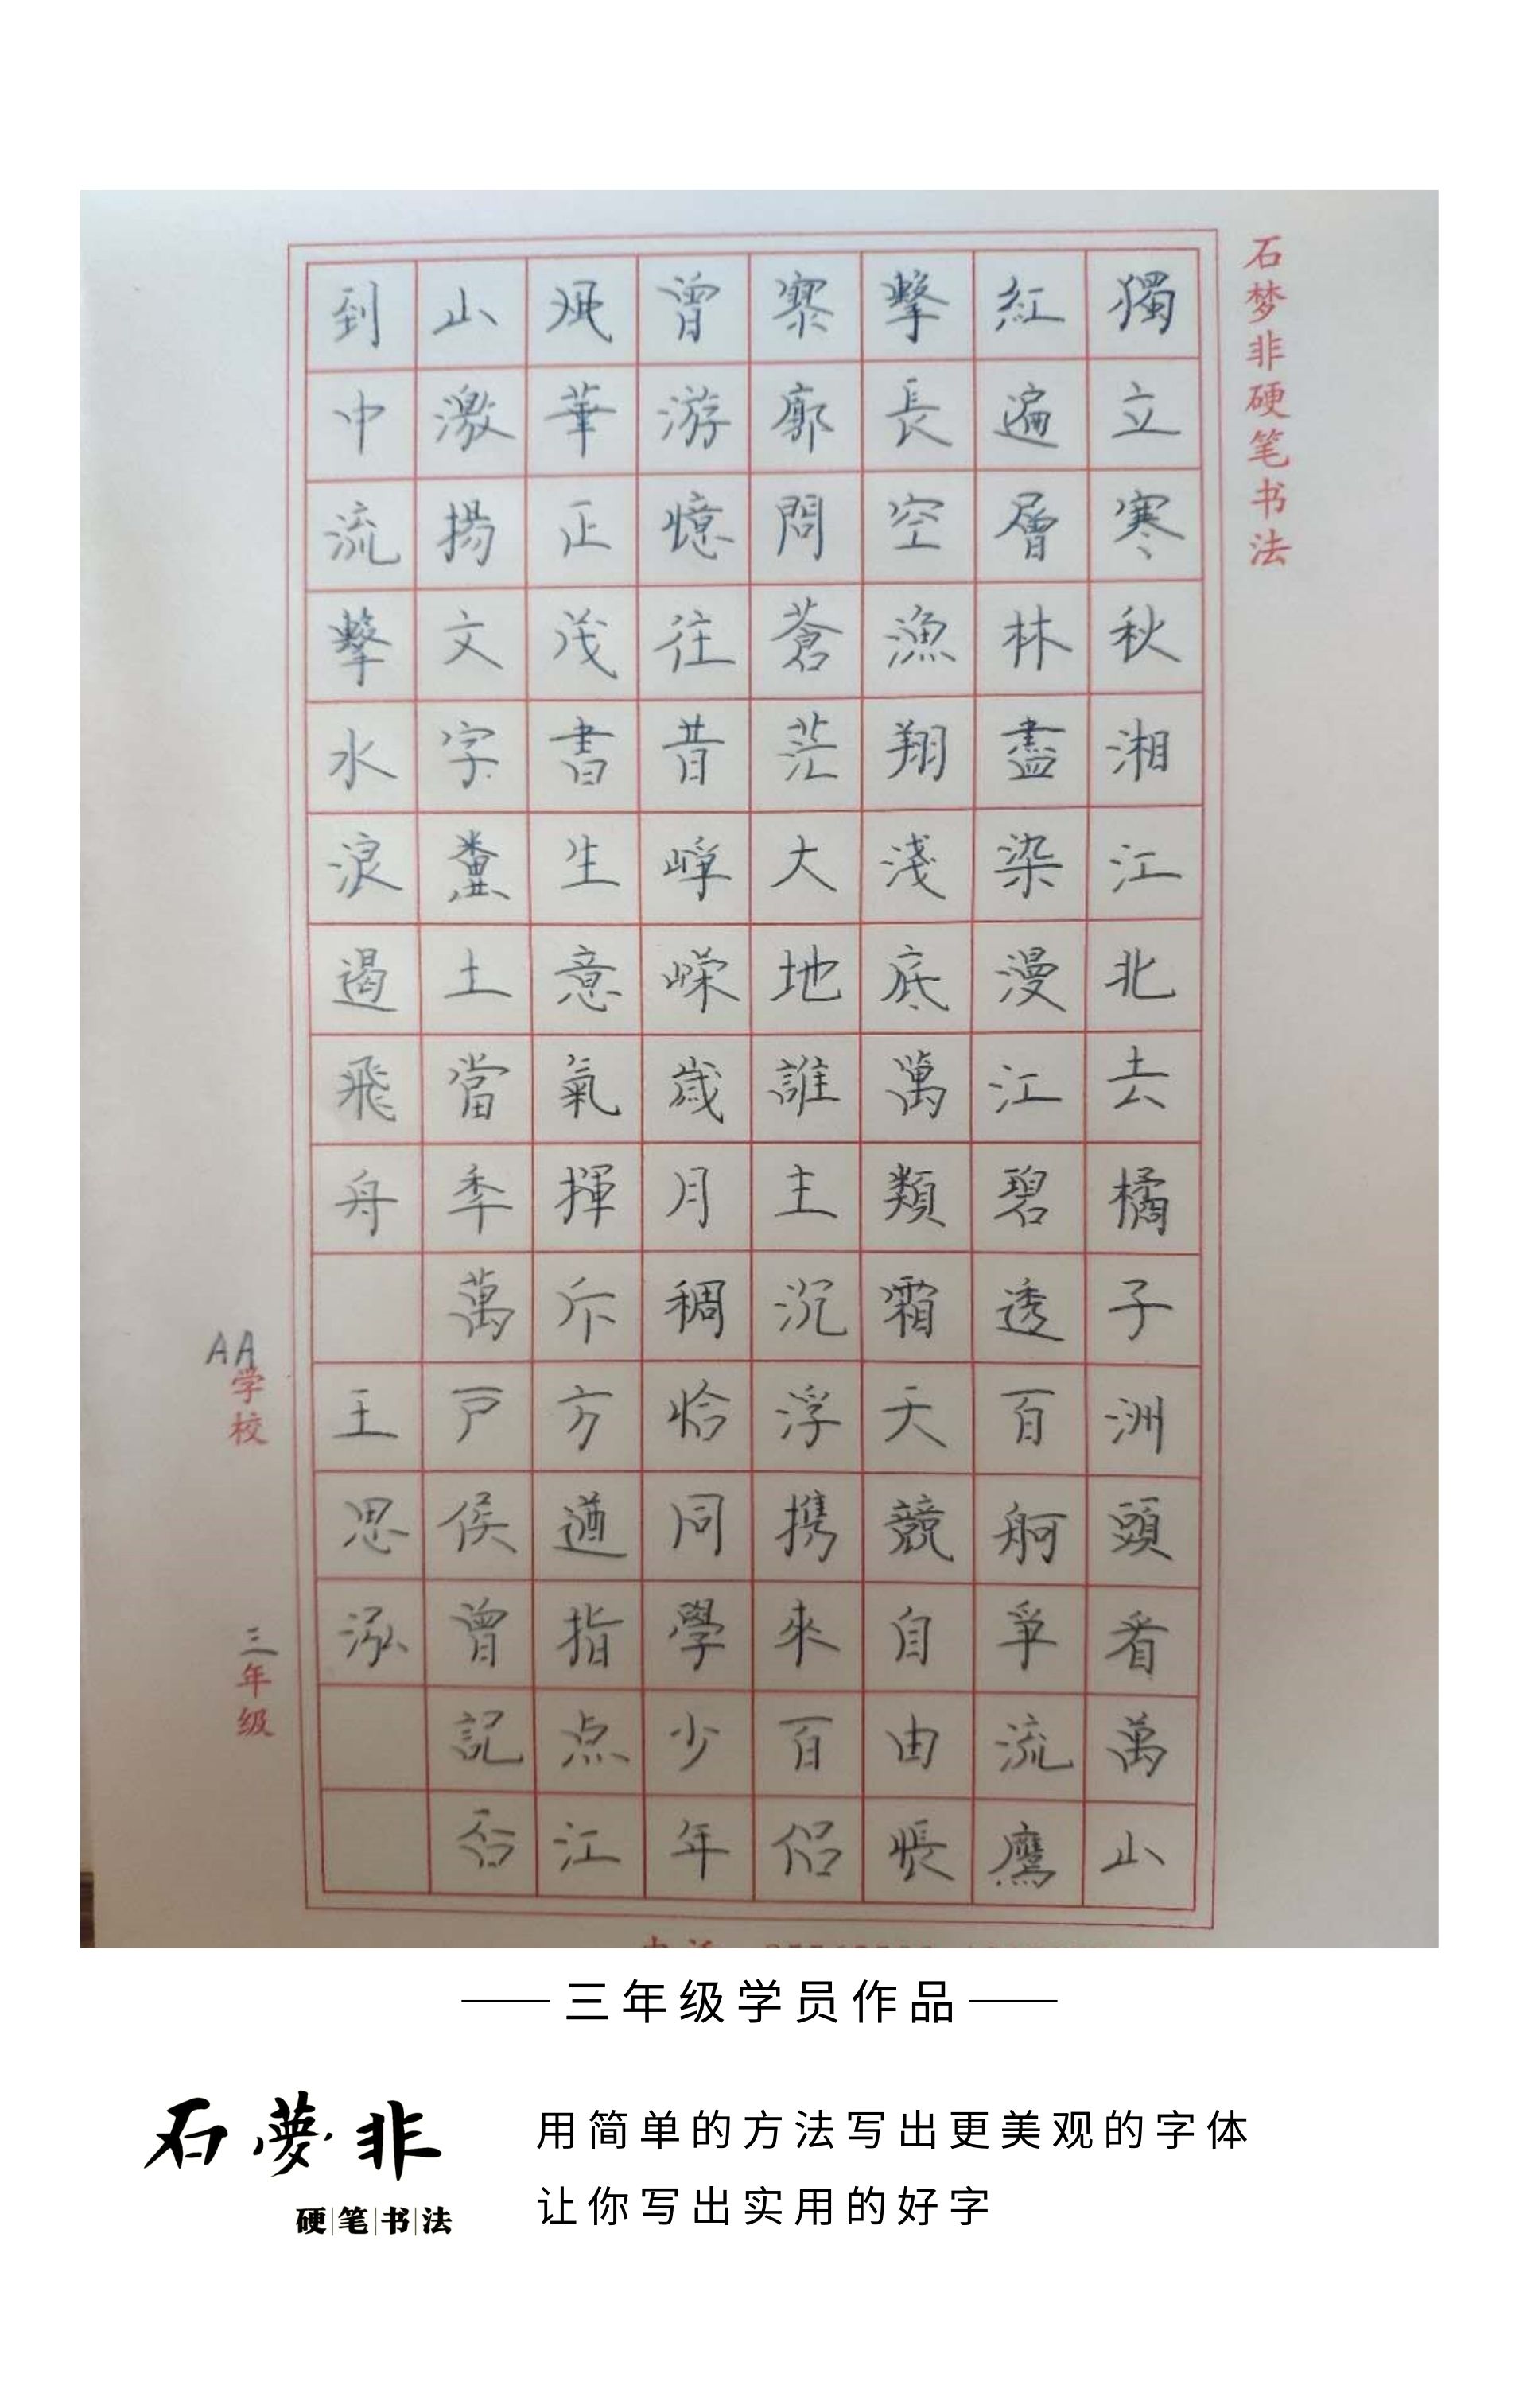 石梦非硬笔书法
獨立寒秋湘江北去橘子洲頭看萬山
紅遍層林盡染漫江碧透百舸爭流鷹
擊長空漁翔淺底萬類霜天競自由悵
寥廓問蒼茫大地誰主沉浮携來百侶
曾游憶往昔崢嶸歲月稠恰同學少年
風華正茂書生意氣揮斥方遒指点江
山激揚文字糞土當秊萬戶侯曾記否
到中流擊水浪遏飛舟 王思泓
AA学校 三年级
三年级学员作品
石夢非
硬笔书法
用简单的方法写出更美观的字体
让你写出实用的好字